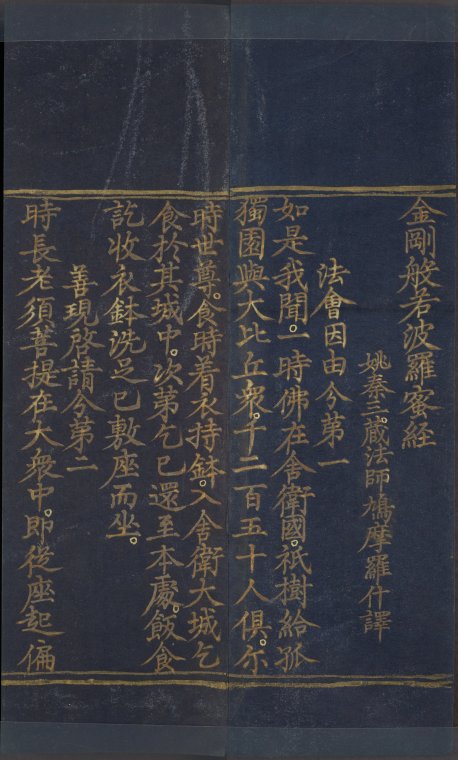 金剛般若波羅蜜経
姚秦三藏法師鳩摩羅什譯
法會因由分第一
如是我聞。一時佛在舎衛國。祇樹給孤
獨園與大比丘衆。千二百五十人俱。尓
時世尊。食時着衣持鉢。入舎衛大城乞
食於其城中。次第乞已還至本處。飯食
訖收衣鉢洗足已敷座而坐。
善現啓請分第二
時長老須菩提在大衆中。即從座起偏